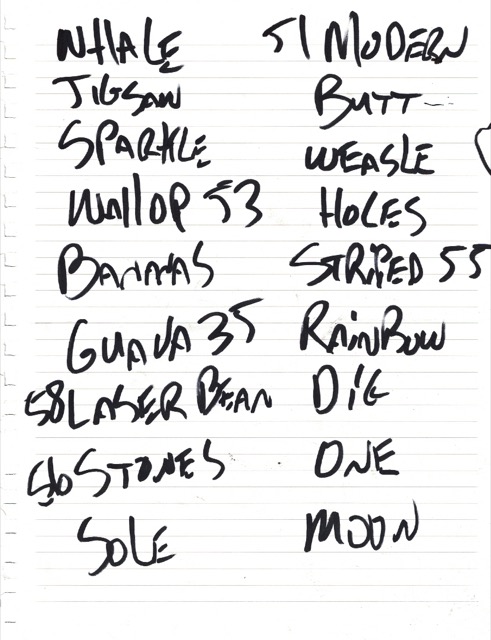 WHALE
JIGSAW
SPARKLE
WALLOP 53
BANANAS
GUAVA 35
58 LASER BEAN
56 STONES
SOLE
51 MODERN
BUTT
WEASLE
HOLES
STRIPED 55
RAINBOW
DIG
ONE
MOON